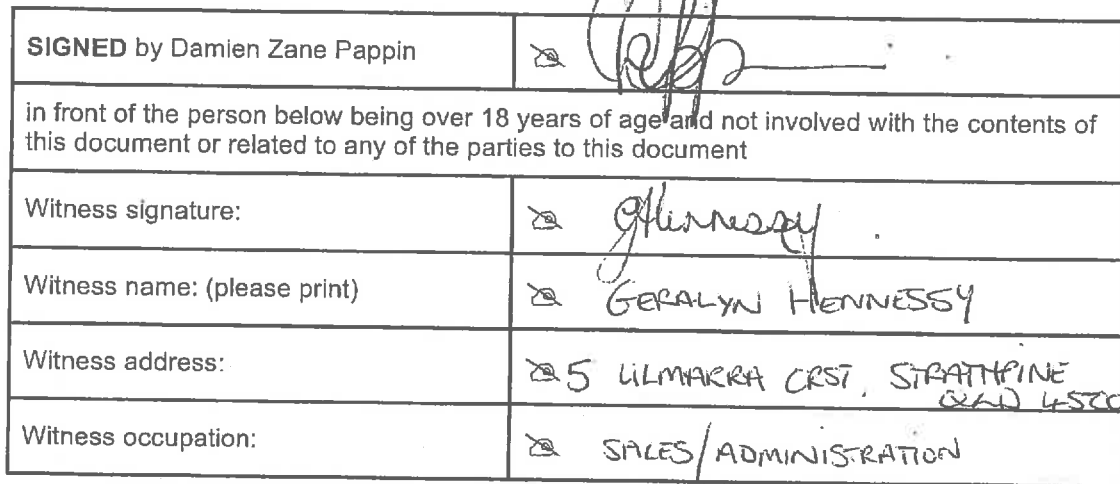 SIGNED by Damien Zane Pappin
in front of the person below being over 18 years of age and not involved with the contents of
this document or related to any of the parties to this document
Witness signature: GHennessy
Witness name: (please print) GERALYN HENNESSY
Witness address: 5 LILMARRA CRST, STRATHPINE
QLD 4500
Witness occupation: SALES/ADMINISTRATION